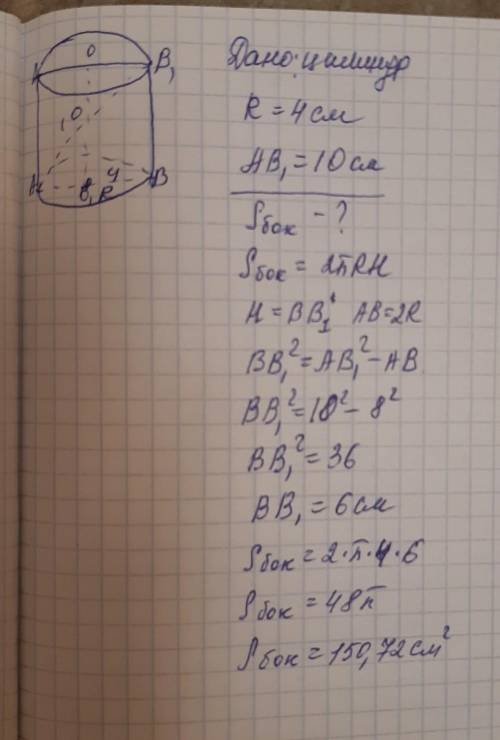 O
B₁
10
A
4
B
O₁ R
Дано: цилиндр
R = 4 см
AB₁ = 10 см
Sбок - ?
Sбок = 2πRH
H = BB₁ AB = 2R
BB₁² = AB₁² - AB
BB₁² = 10² - 8²
BB₁² = 36
BB₁ = 6 см
Sбок = 2·π·4·6
Sбок = 48π
Sбок = 150,72 см²